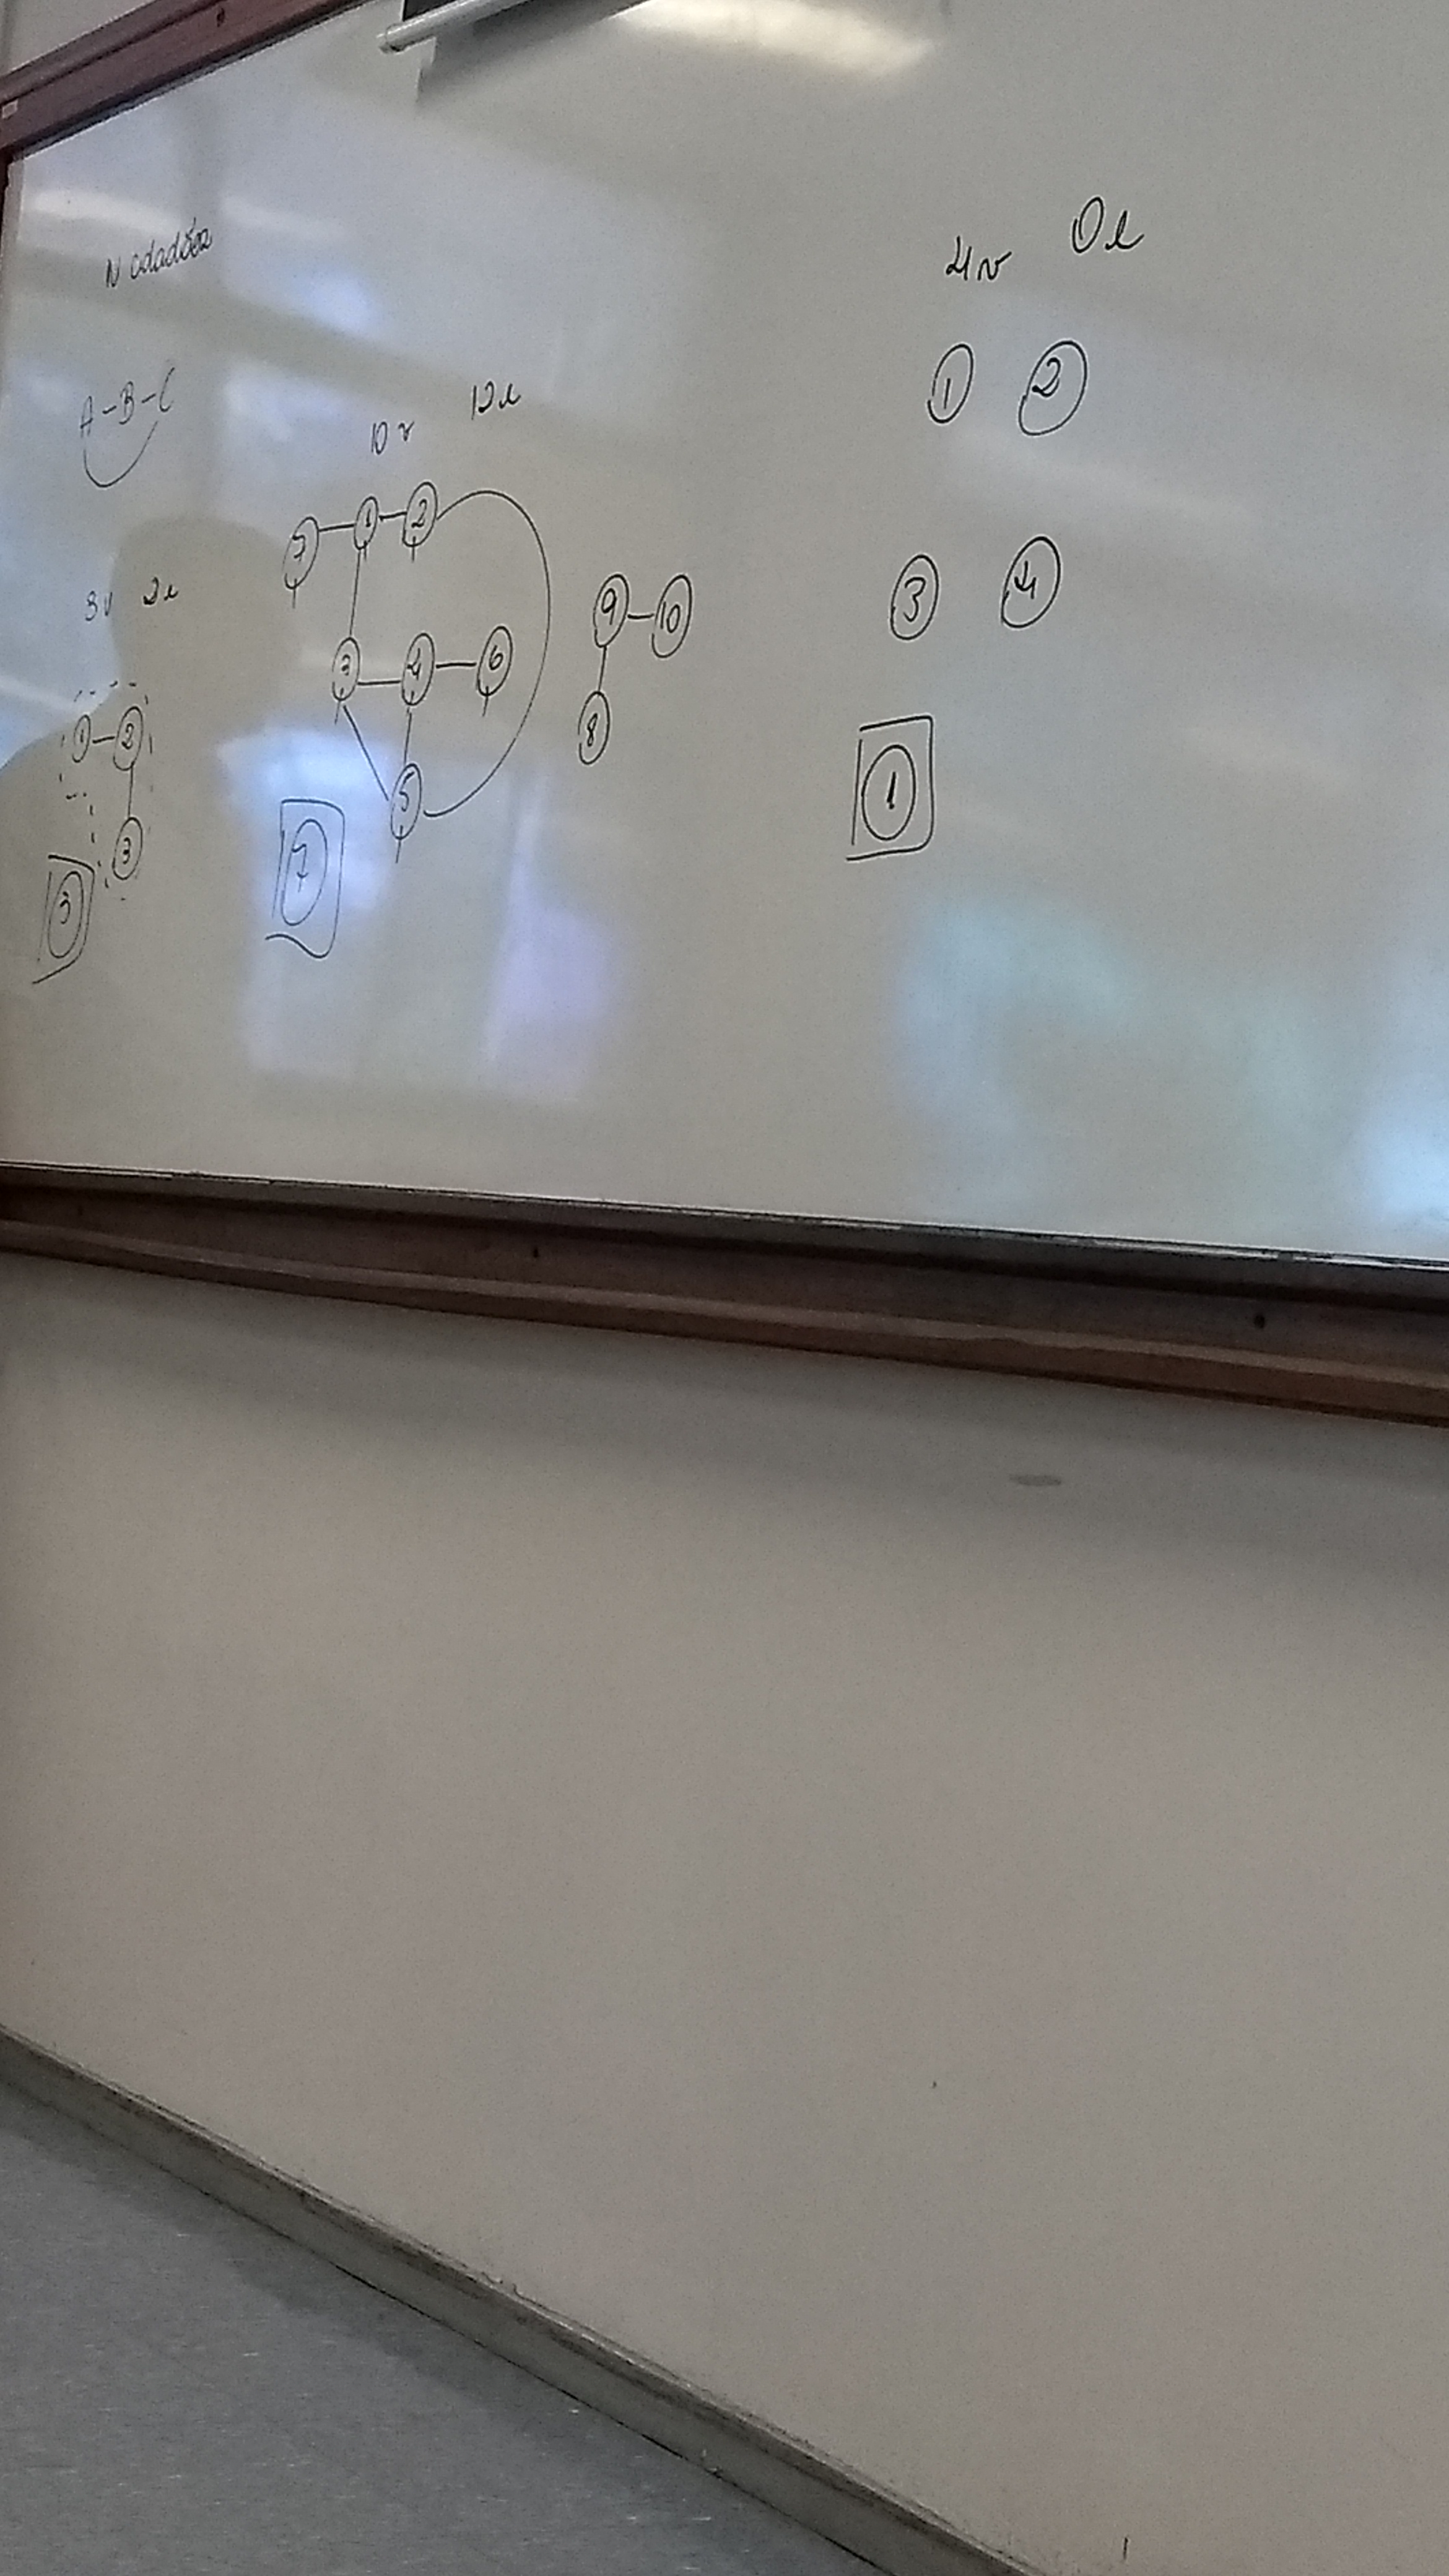 N cidadões
A-B-C
3v 2e
1-2
3
3
10v 12e
7-1-2
3-4-6
5
7
9-10
8
4v 0e
1 2
3 4
1